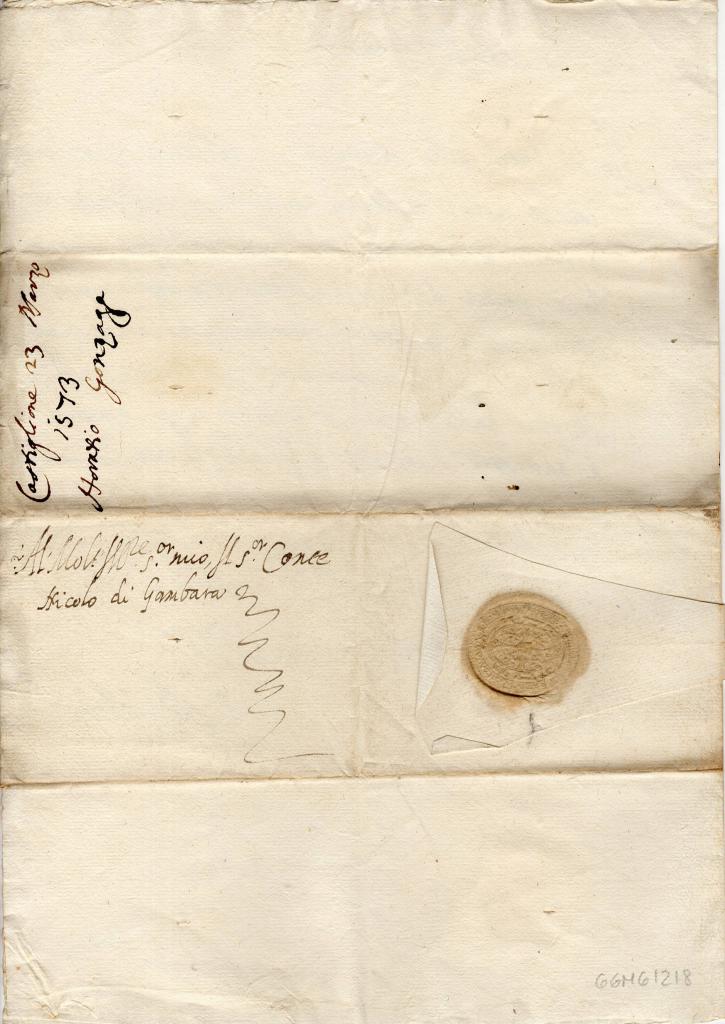 Castiglione 23 Marzo
1573
Horatio Gonzaga
Al Mol. Ill.re s.or mio, Il s.or Conte
Nicolo di Gambara
GGMG1218